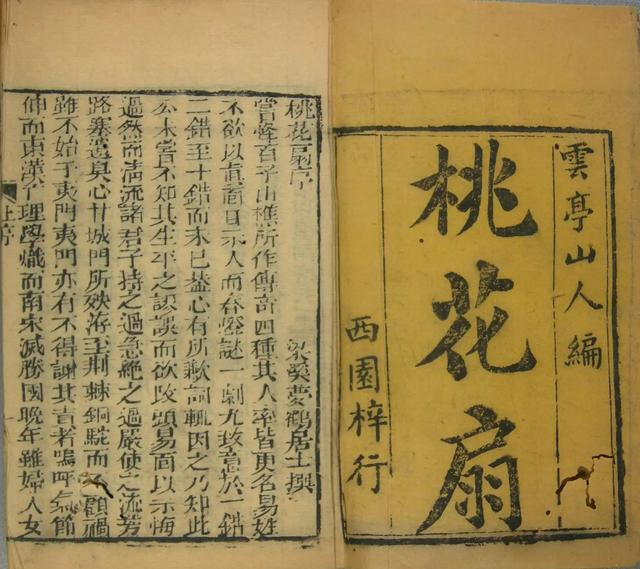 雲亭山人編
桃花扇
西園梓行
桃花扇序
梁溪夢鶴居士撰
嘗怪百子山樵所作傳奇四種其人率皆更名易姓
不欲以眞面目示人而春燈謎一劇尤致意於一錯
二錯至十錯而未已蓋心有所歉詞輒因之乃知此
公未嘗不知其生平之謬誤而欲改頭易面以示悔
過然而清流諸君子持之過急絕之過嚴使之流芳
路塞遺臭心甘城門所殃洊至荊棘銅駝而不顧禍
雖不始于夷門夷門亦有不得謝其責者嗚呼氣節
伸而東漢亡理學熾而南宋滅勝國晚年雖婦人女
上序